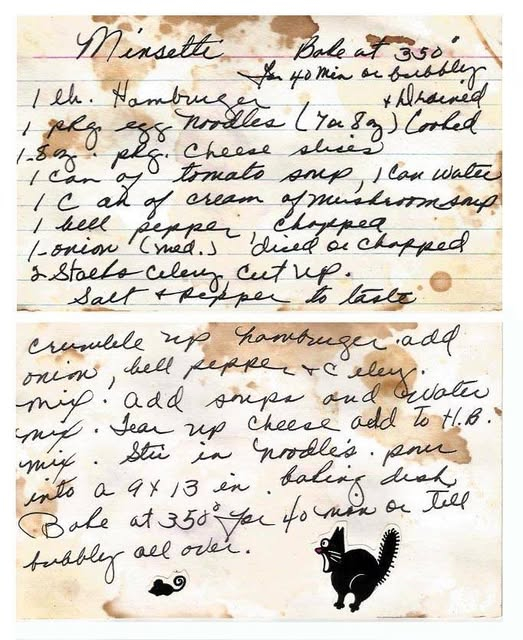 Minsetti Bake at 350°
for 40 min or bubbly
1 lb. Hamburger
1 pkg egg noodles (7 or 8 oz) Cooked & Drained
1-8 oz. pkg. cheese slices
1 can of tomato soup, 1 can water
1 can of cream of mushroom soup
1 bell pepper chopped
1-onion (med.) diced or chopped
2 Stalks celery cut up.
Salt & pepper to taste
crumble up hamburger. add
onion, bell pepper & celery.
mix. add soups and water
mix. Tear up cheese add to H.B.
mix. Stir in noodle's. pour
into a 9 x 13 in. baking dish
Bake at 350° for 40 min or till
bubbly all over.